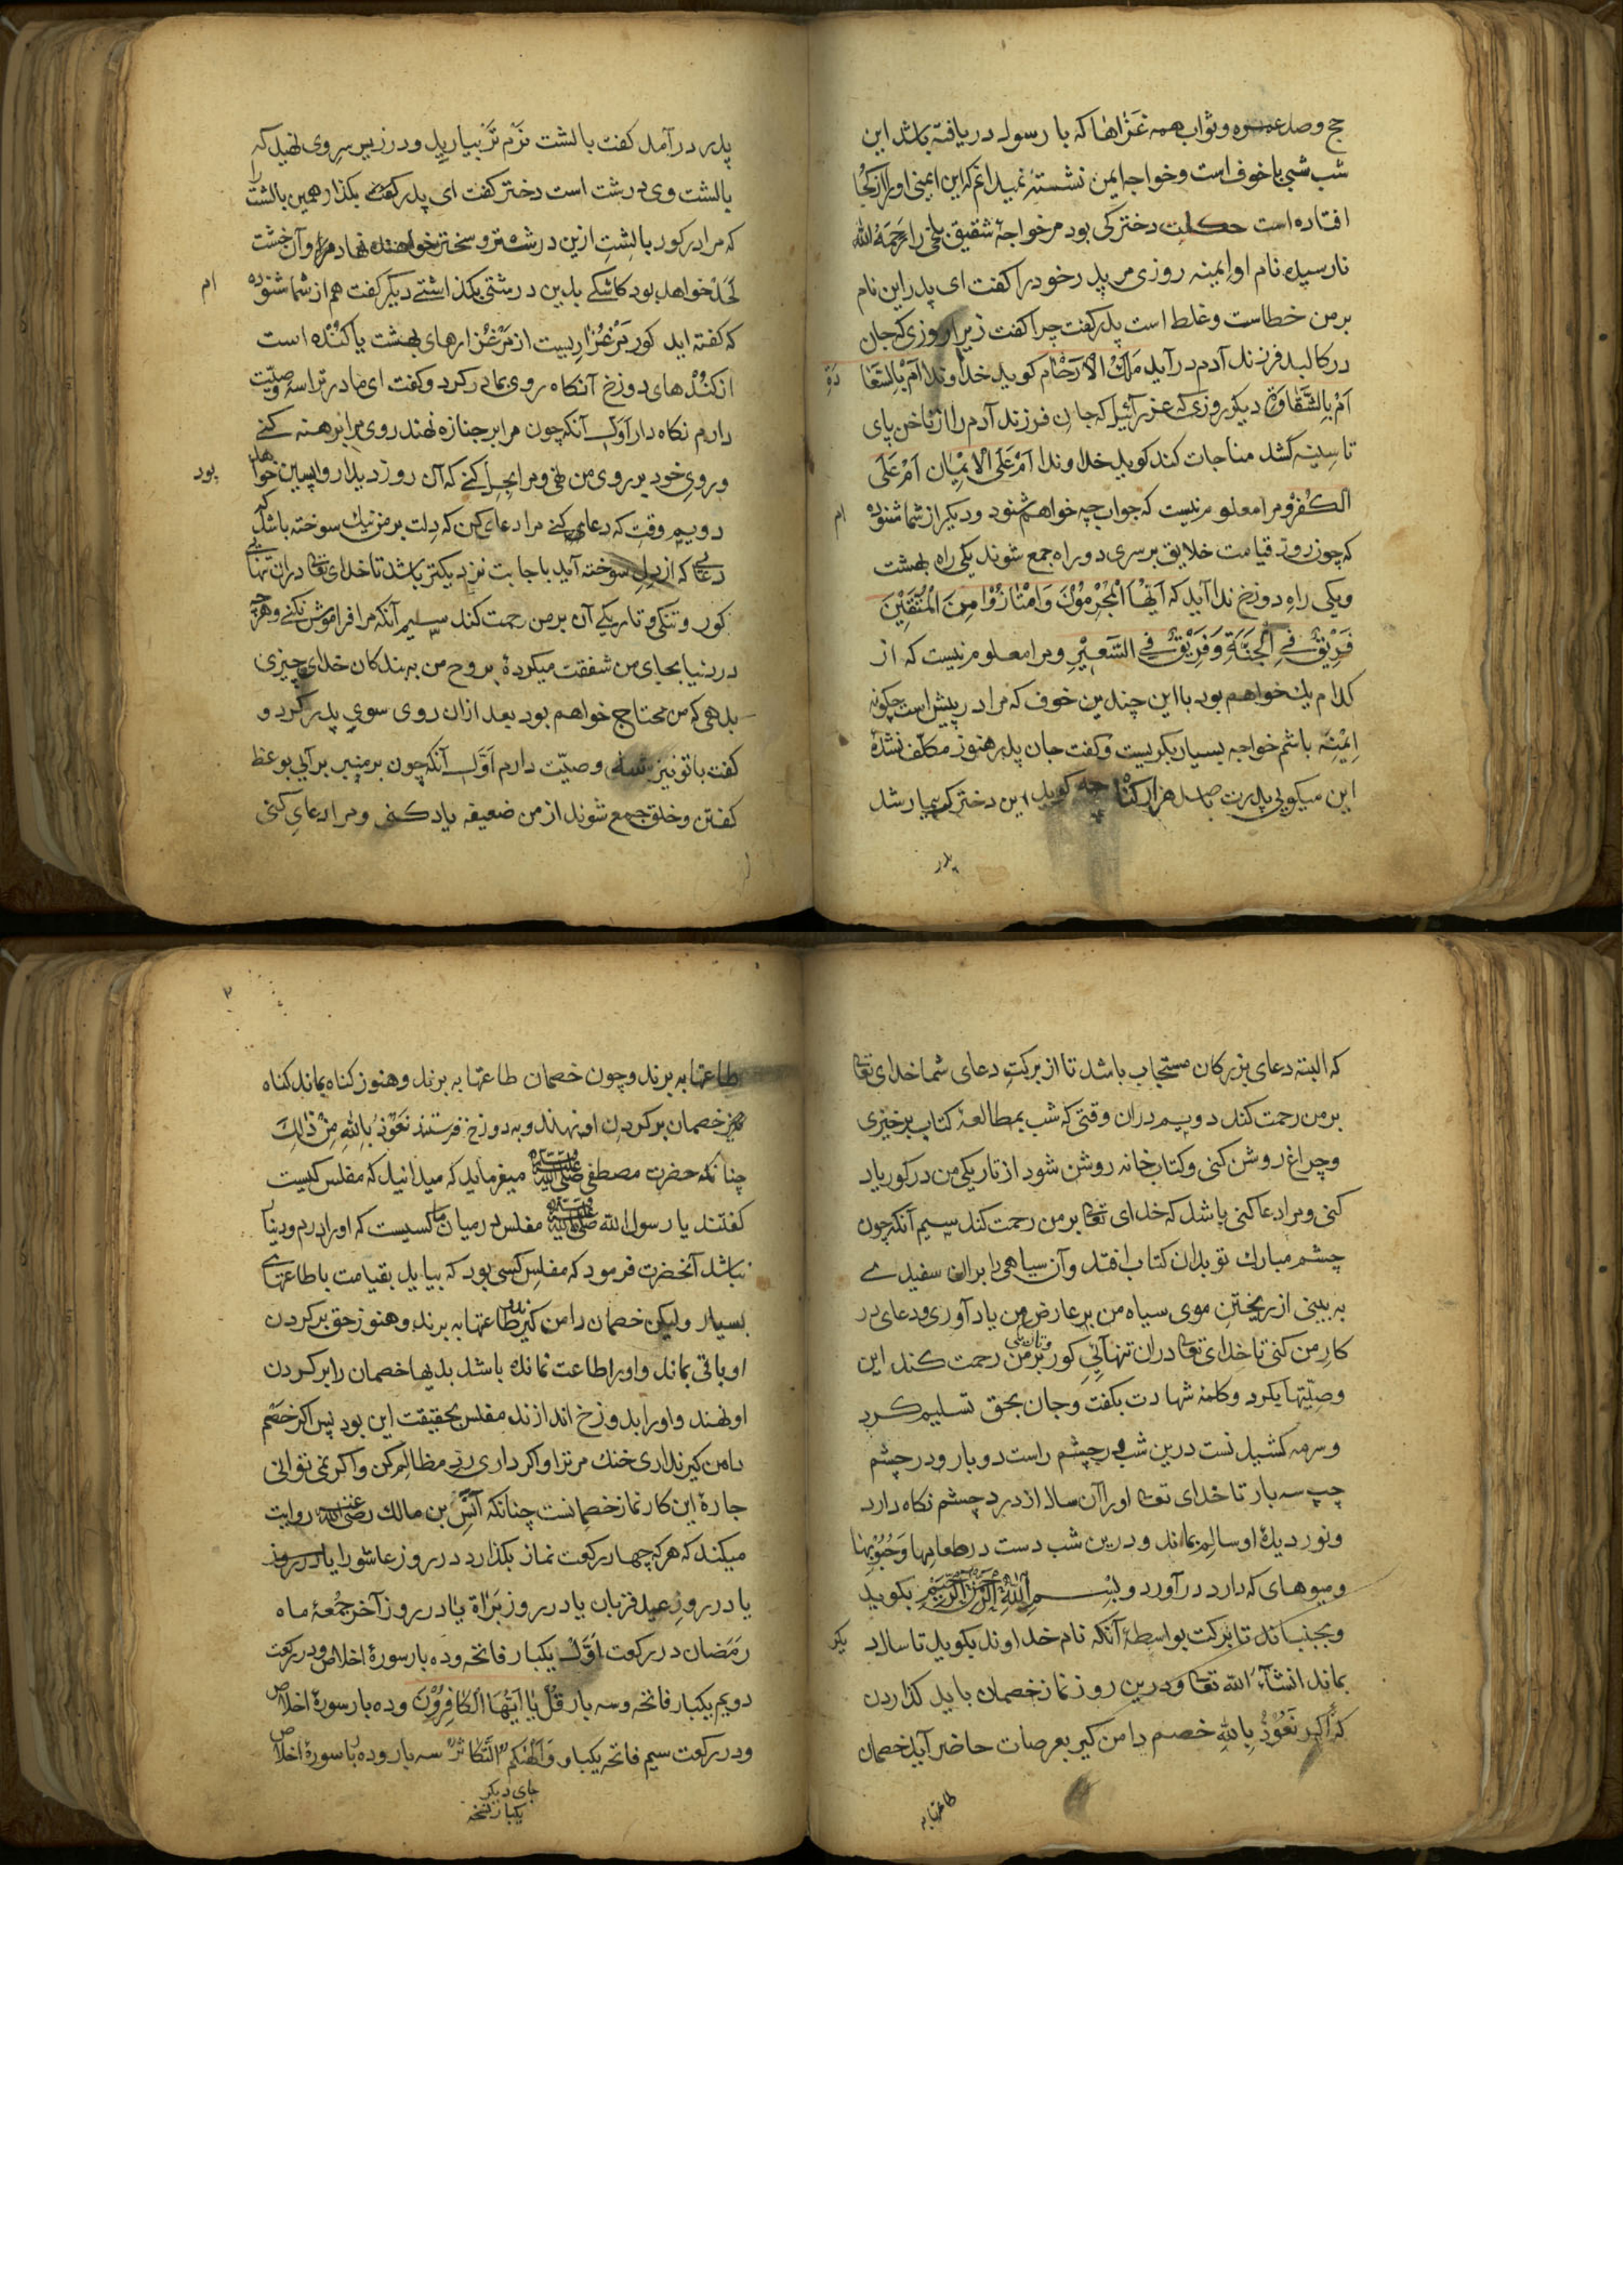 حج وصد عمره وثواب همه غزاها که با رسول دریافته باشد این
شب شبی باخوف است وخواجه ایمن نشسته نمیدانم که این ایمنی او را از کجا
افتاده است حکایت دخترکی بود مر خواجهٔ شقیق بلخی را رحمه الله
نارسیده نام او ایمنه روزی مر پدر خود را کفت ای پدر این نام
بر من خطاست وغلط است پدر کفت چرا کفت زیرا روزی که جان
در کالبد فرزند آدم در آید مَلَکُ الْاَرْحَام کوید خداوندا اَمْ بِالسَّعَا
دَةِ
اَمْ بِالشَّقَاوَةِ دیکر روزی که عزرائیل که جان فرزند آدم را از ناخن پای
تا سینه کشد مناجات کند کوید خداوندا اَمْ عَلَی الْاِیْمَان اَمْ عَلَی
الکُفْرِ ومرا معلوم نیست که جواب چه خواهم شنود ودیکر از شما شنوده
ام
که چون روز قیامت خلایق بر سری دو راه جمع شوند یکی راه بهشت
ویکی راه دوزخ ندا آید که اَیُّهَا الْمُجْرِمُوْنَ وَامْتَازُوْا مِنَ الْمُتَّقِیْنَ
فَرِیْقٌ فِی الْجَنَّةِ وَفَرِیْقٌ فِی السَّعِیْرِ ومرا معلوم نیست که از
کدام یک خواهم بود با این چندین خوف که مرا در پیش است چکونه
اِیْمِنَه باشم خواجه بسیار بکریست وکفت جان پدر هنوز مکلّف نشدهٔ
این میکویی پدرت با صد هزار کناه چه کوید این دخترک بیمار شد
پدر
پدر در آمد کفت بالشت نرم تر بیارید ودر زیر سر وی نهید که
بالشت وی درشت است دختر کفت ای پدر بکذار همین بالشت را
که مرا در کور بالشت ازین درشتتر وسختتر خواهند نهاد مرا وآن خشت
لَحَدْ خواهد بود کاشکی بدین درشتی بکذاشتی دیکر کفت هم از شما شنوده
ام
که کفته اید کور مَرْغُزاریست از مَرْغُزارهای بهشت یا کُنْده است
از کُنْدهای دوزخ آنکاه روی بمادر کرد وکفت ای مادر ترا سه وصیّت
دارم نکاه دار اَوَّل آنکه چون مرا بر جنازه نهند روی مرا برهنه کنی
وروی خود بر روی من نهی ومرا بحل کنی که آن روز دیدار واپسین خواهد
بود
دویم وقت که دعای کنی مرا دعای کن که دلت بر من نیک سوخته باشد که
دعائی که از دل سوخته آید باجابت نزدیکتر باشد تا خدای تعالی در آن تنهائی
کور وتنکی وتاریکی آن بر من رحمت کند سیم آنکه مرا فراموش نکنی وهر چه
در دنیا بجای من شفقت میکردهٔ بروح من به بندکان خدای چیزی
بدهی که من محتاج خواهم بود بعد ازان روی سوی پدر کرد و
کفت با تو نیز سه وصیّت دارم اَوَّل آنکه چون بر منبر برآئی بوعظ
کفتن وخلق جمع شوند از من ضعیفه یاد کنی ومرا دعای کنی
که البته دعای بزرکان مستجاب باشد تا از برکت دعای شما خدای تعالی
بر من رحمت کند دویم دران وقتی که شب بمطالعهٔ کتاب برخیزی
وچراغ روشن کنی وکتاب خانه روشن شود از تاریکی من در کور یاد
کنی ومرا دعا کنی باشد که خدای تعالی بر من رحمت کند سیم آنکه چون
چشم مبارک تو بدان کتاب افتد وآن سیاهی را بران سفیدی
به بینی از ریختن موی سیاه من بر عارض من یاد آوری ودعای در
کار من کنی تا خدای تعالی دران تنهائی کور بر من رحمت کند این
وصیّتها بکرد وکلمه شهادت بکفت وجان بحق تسلیم کرد
وسرمه کشیدنست درین شب در چشم راست دو بار ودر چشم
چپ سه بار تا خدای تعالی او را آن سال از درد چشم نکاه دارد
ونور دیدهٔ او سالم بماند ودرین شب دست در طعامها وَحُبُوْبها
ومیوهای که دارد در آورد وبِسْمِ اللهِ الرَّحْمٰنِ الرَّحِیْمِ بکوید
وبجنباند تا برکت بواسطهٔ آنکه نام خداوند بکوید تا سالِ
دیکر
بماند انشآء الله تعالی ودرین روز نماز خصمان باید کذاردن
که اکر نَعُوْذُ بِاللهِ خصم دامن کیر بعرصات حاضر آید خصمان
طاعتها به
۲
طاعتها به برند وچون خصمان طاعتها به برند وهنوز کناه بماند کناه
خصمان بر کردن او نهند وبه دوزخ فرستند نَعُوْذُ بِاللهِ مِنْ ذٰلِكَ
چنانکه حضرت مصطفی صلی الله علیه وسلم میفرماید که میدانید که مفلس کیست
کفتند یا رسول الله صلی الله علیه وسلم مفلس در میان ما کسیست که او را درم ودینار
نباشد آنحضرت فرمود که مفلس کسی بود که بیاید بقیامت با طاعتهای
بسیار ولیکن خصمان دامن کیر طاعتها به برند وهنوز حق بر کردن
او باقی بماند واو را طاعت نمانده باشد بدیها خصمان را بر کردن
او نهند واو را بدوزخ اندازند مفلس بحقیقت این بود پس اکر خصم
دامن کیر نداری خنك مر ترا واکر داری ردّ مظالم کن واکر نمی توانی
چارهٔ این کار نماز خصمانست چنانکه اَنَسِ بن مالک رضی الله عنه روایت
میکند که هر که چهار رکعت نماز بکذارد در روز عاشورا یا در روز
یا در روز عید قربان یا در روز بَرَاة یا در روز آخر جُمعهٔ ماه
رَمَضان در رکعت اَوَّل یکبار فاتحه وده بار سورهٔ اخلاص ودر رکعت
دویم یکبار فاتحه وسه بار قُلْ یَا اَیُّهَا الْکَافِرُوْنَ وده بار سورهٔ اخلاص
ودر رکعت سیم فاتحه یکبار و اَلْهٰیکُمُ التَّکَاثُرُ سه بار وده بار سورهٔ اخلاص
جای دیکر
یکبار نسخه